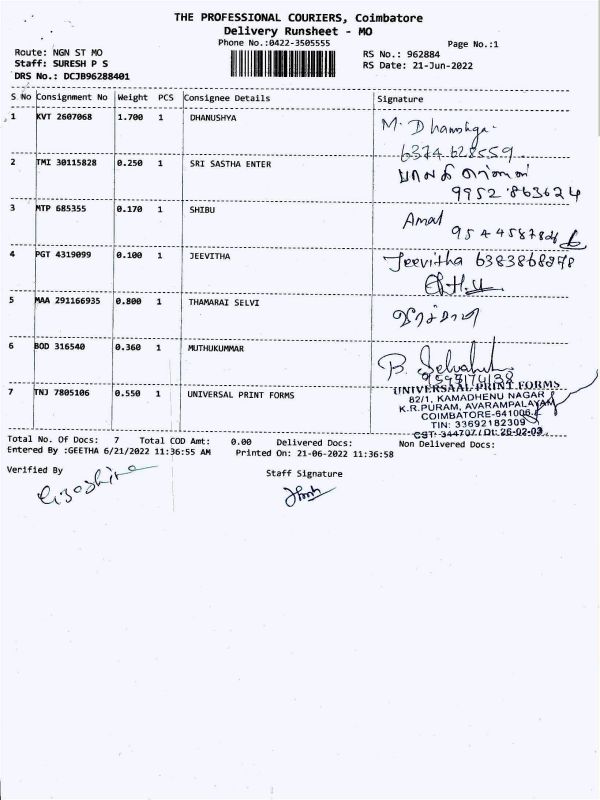 THE PROFESSIONAL COURIERS, Coimbatore
Delivery Runsheet - MO
Phone No.:0422-3505555
Page No.:1
Route: NGN ST MO
RS No.: 962884
Staff: SURESH P S
RS Date: 21-Jun-2022
DRS No.: DCJB96288401
S No Consignment No Weight PCS Consignee Details Signature
1 KVT 2607068 1.700 1 DHANUSHYA
M. Dhanushya
6374 628559
2 TMI 30115828 0.250 1 SRI SASTHA ENTER
9952 863624
3 MTP 685355 0.170 1 SHIBU
Amal
4 PGT 4319099 0.100 1 JEEVITHA
Jeevitha 6383868978
5 MAA 291166935 0.800 1 THAMARAI SELVI
6 BOD 316540 0.360 1 MUTHUKUMMAR
B.
7 TNJ 7805106 0.550 1 UNIVERSAL PRINT FORMS
UNIVERSAAL PRINT FORMS
82/1, KAMADHENU NAGAR
K.R.PURAM, AVARAMPALAYAM
COIMBATORE-641006.
TIN: 33692182309
CST: 344707 / Dt: 26-02-03
Total No. Of Docs: 7 Total COD Amt: 0.00 Delivered Docs: Non Delivered Docs:
Entered By :GEETHA 6/21/2022 11:36:55 AM Printed On: 21-06-2022 11:36:58
Verified By
Staff Signature